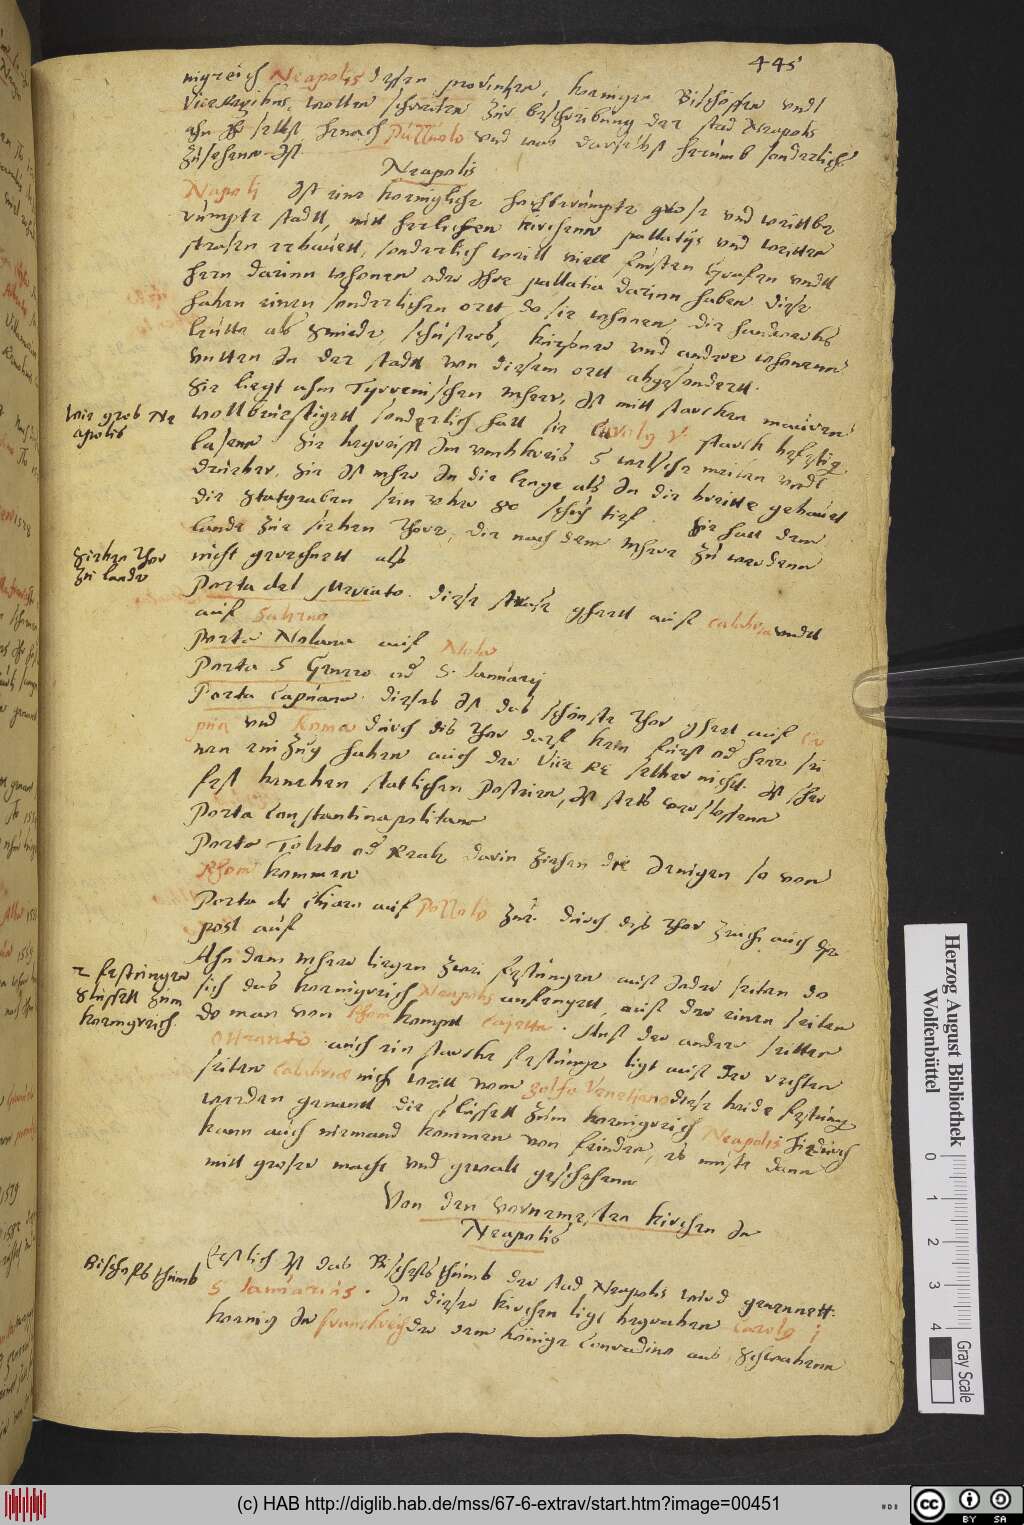 445
nigreich Neapolis dessen provintzen, koenigen Bischoffen undt
Vice Regibus, wollen schreiten zur beschreibung der stad Neapolis
ahn selbst, hernach Puzzuolo und was daselbst herumb sonderlichs
zusehenn ist.
Neapolis
Napoli Ist eine koenigliche hochberumpte grosse und weittbe
rumpte stadt, mitt herlichen kirchenn pallatijs und weitten
strassen erbauett, sonderlich weill viell fursten Grafen undt
hern darinn whonen oder Ihre pallatia darinn haben diese
haben einen sonderlichen ortt do sie whonen, die handwerchs
leutte als schmiede, schusters, kurssner und andere whonenn
untten In der stadt von diesem ortt abgesondertt.
Sie liegt ahm Tyrrenischen mheer, Ist mitt starcken mauren
wollbevestigett sonderlich hatt sie Carolg V. starck befestig
lassenn. Sie begreifft Im umbkreis 5 welsche meilen undt
druber. Sie Ist mher In die lenge als In die breitte gebauet
die statgraben sein uber 80 schuch tief. Sie hatt dem
lande zu sieben Thore, die nach dem mhere zu werdenn
nicht gerechnett als
Wie gros Ne
apolis
Sieben Thor
zu lande
Porta del Mercato. diese strasse gehett auff Calabria undt
auff Salerno
Porta Nolana auff Nola
Porta S Genaro od S. Januarij
Porta Capuana. dieses Ist das schönste Thor gehet auff Ca
pua und Roma durch dis Thor darf kein furst od herr sei
nen einzug haben auch der Vice Re selber nicht. Ist sehr
fest beneben statlichen Posteien, Ist stets verschlossenn
Porta Constantinapolitana
Porta Toleto od Reale darin ziehen die Jenigen so von
Rhom kommen
Porta di Chiaia auff Pozzolo zu. durch dis Thor zeucht auch die
post auff
Ahn dem mhere liegen zwei festungen auff Jeder seiten do
sich das koenigreich Neapolis anfengett, auff der einen seiten
do man von Rhom kompt Cajetta. Auff der andern seitten
Ottranto auch ein starcke festunge ligt auff der rechten
seiten Calabria nich weitt vom golfo Venetiano diese beide festung
werden genand die schlussell zum koenigreich Neapolis hierdurch
kann auch niemand kommen von feinden, es muste dann
mitt grosser macht und gewalt geschehenn
2 festungen
Schlussell zum
koenigreich
Von den vornemesten kirchen In
Neapolis
Bischofs thumb
Erstlich Ist das Bischofs thumb der stad Neapolis wird genennett
S Januarius. In dieser kirchen ligt begraben Carolg j
koenig In franckreich der dem könige Conradino aus Schwabenn
Herzog August Bibliothek
Wolfenbüttel
0 1 2 3 4
Gray Scale
(c) HAB http://diglib.hab.de/mss/67-6-extrav/start.htm?image=00451
cc BY SA